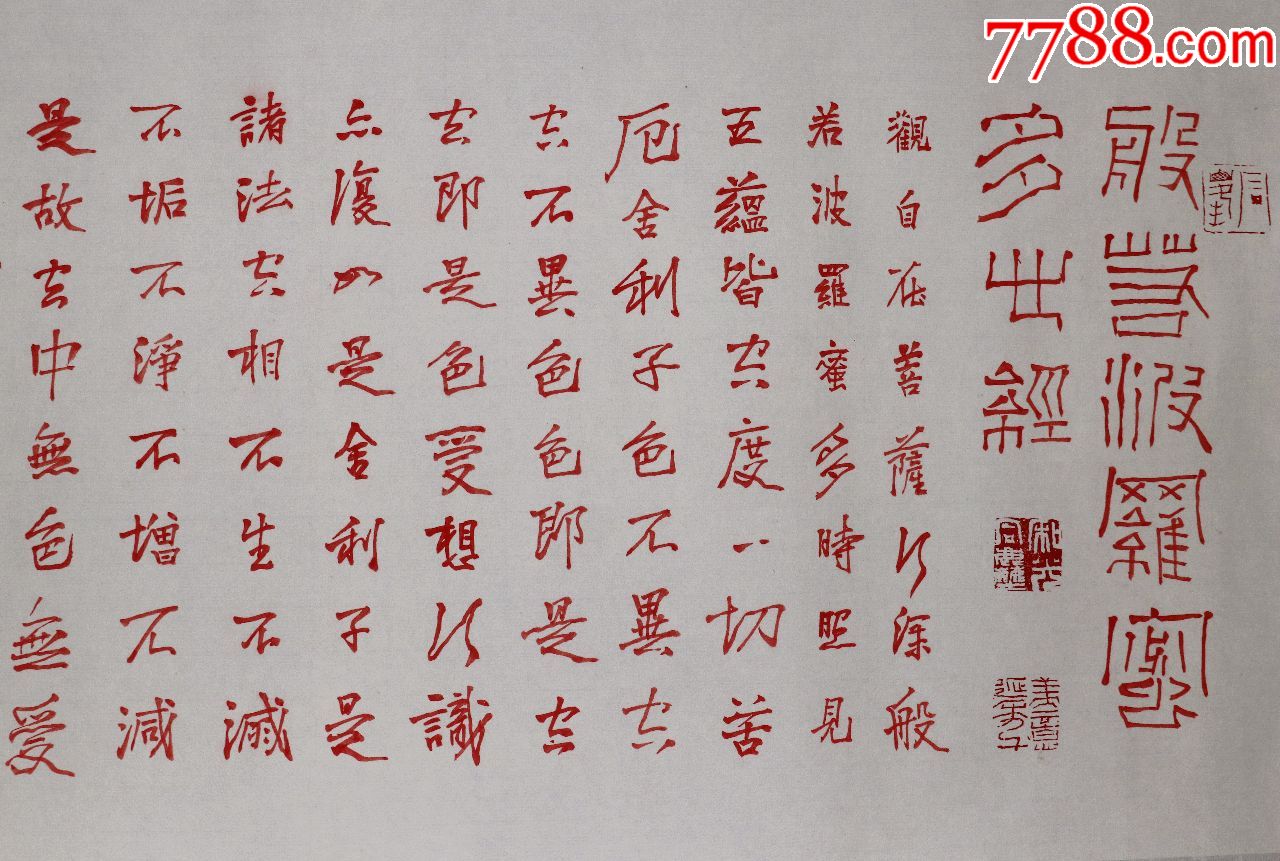 7788.com
般若波羅蜜
多心經
和光同塵
美意延年
觀自在菩薩行深般
若波羅蜜多時照見
五蘊皆空度一切苦
厄舍利子色不異空
空不異色色即是空
空即是色受想行識
亦復如是舍利子是
諸法空相不生不滅
不垢不淨不增不減
是故空中無色無受